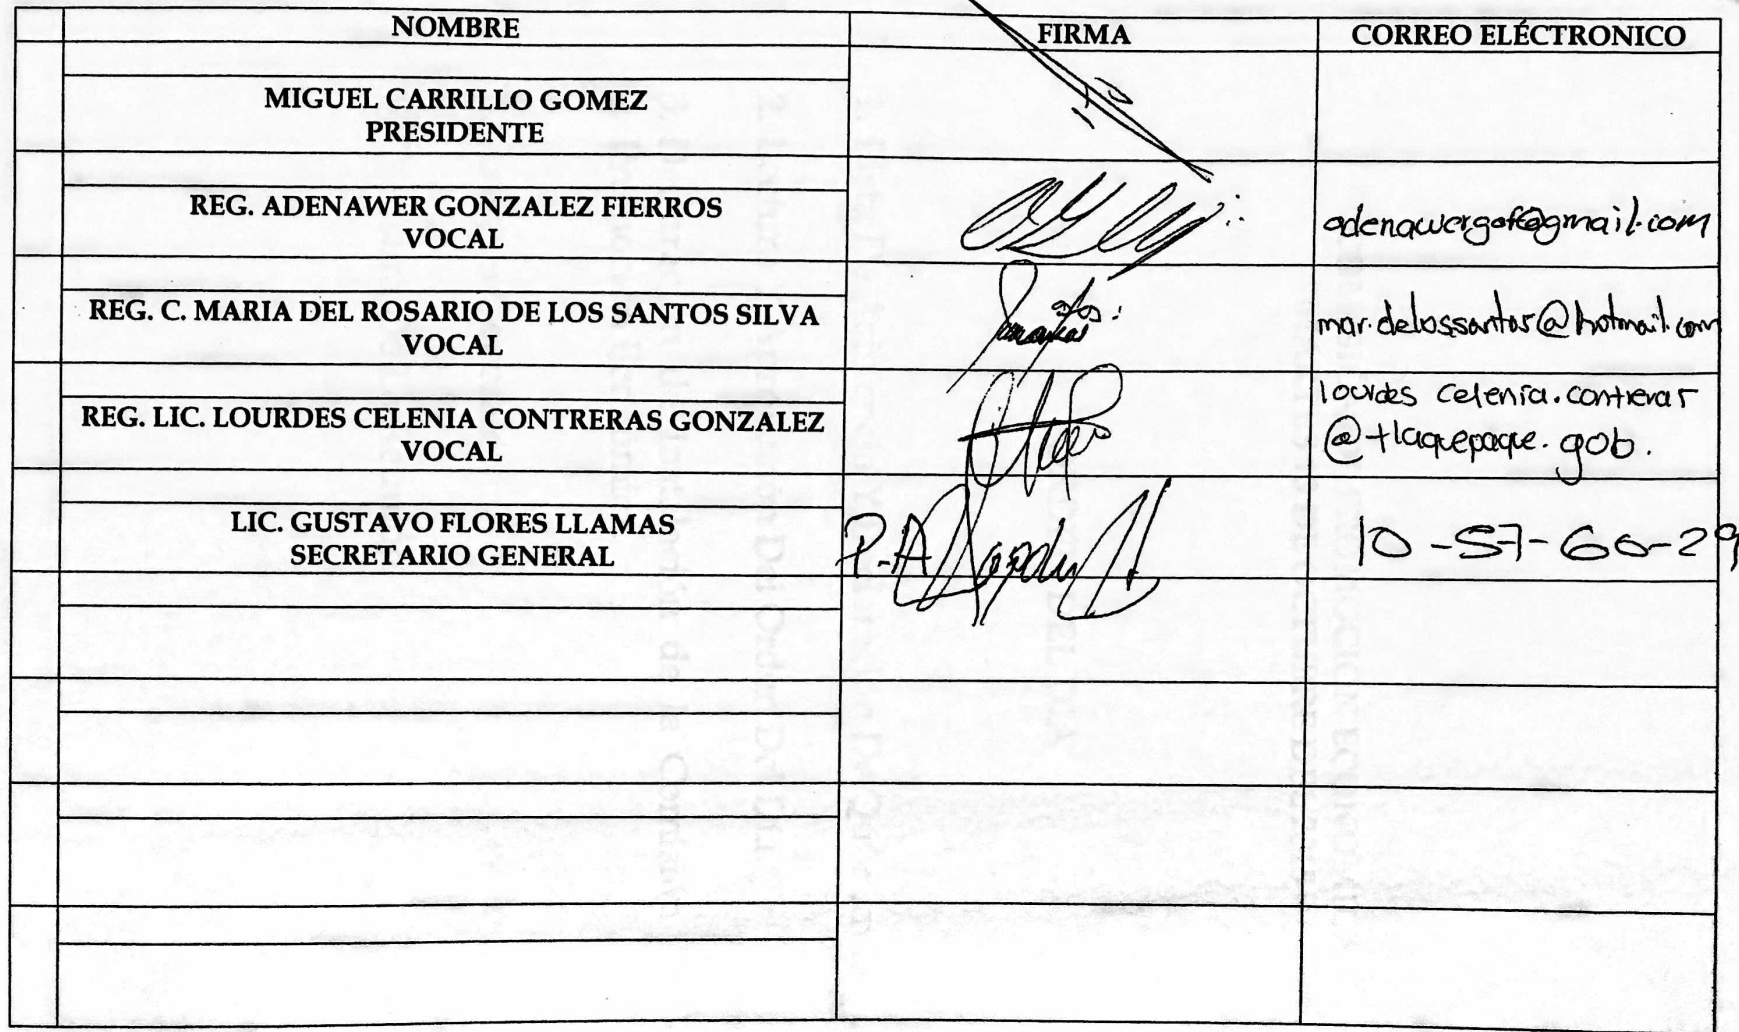 NOMBRE FIRMA CORREO ELÉCTRONICO
MIGUEL CARRILLO GOMEZ
PRESIDENTE
REG. ADENAWER GONZALEZ FIERROS
VOCAL
adenawergof@gmail.com
REG. C. MARIA DEL ROSARIO DE LOS SANTOS SILVA
VOCAL
mar.delossantos@hotmail.com
REG. LIC. LOURDES CELENIA CONTRERAS GONZALEZ
VOCAL
lourdes celenia.contreras
@tlaquepaque.gob.
LIC. GUSTAVO FLORES LLAMAS
SECRETARIO GENERAL
P.A
10-57-60-29